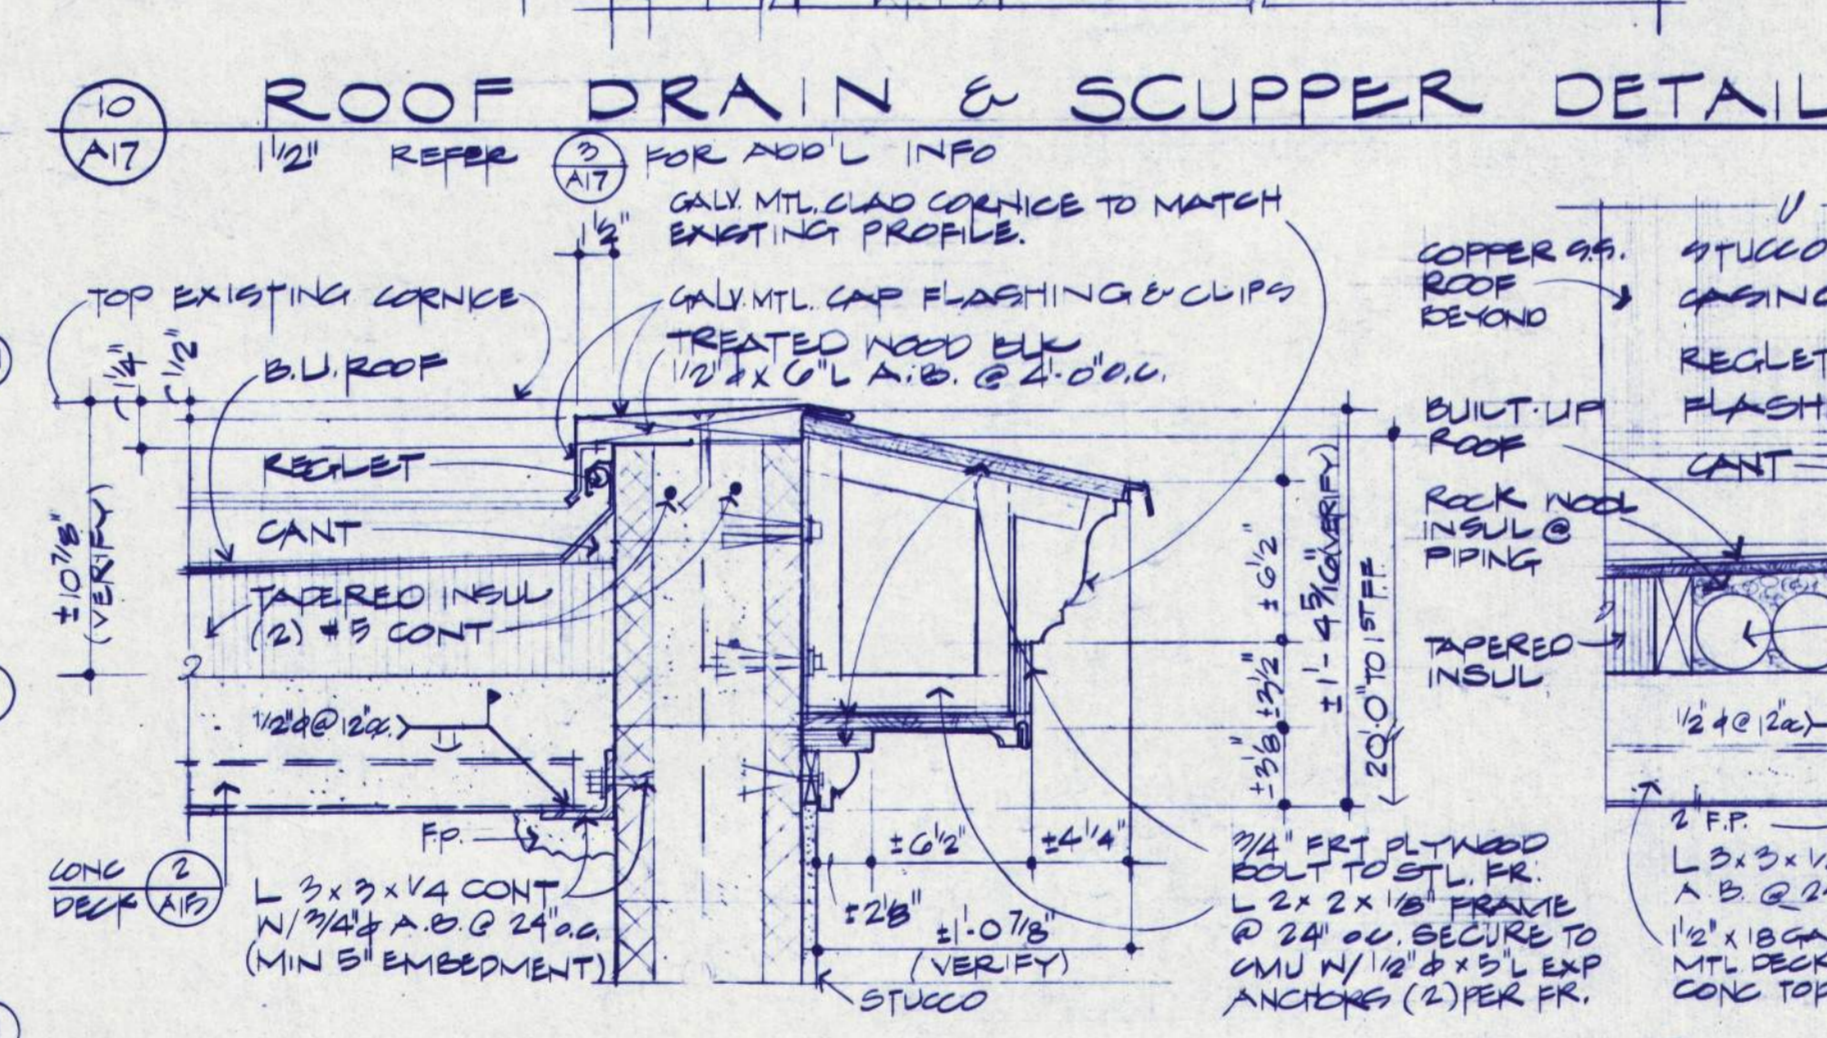 10
A17
ROOF DRAIN & SCUPPER DETAIL
1 1/2" REFER 3 A17 FOR ADD'L INFO
GALV. MTL. CLAD CORNICE TO MATCH
EXISTING PROFILE.
1 1/2"
TOP EXISTING CORNICE
GALV. MTL. CAP FLASHING & CLIPS
TREATED WOOD BLK
1/2"φ x 6"L A.B. @ 4'-0" O.C.
1 1/4"
1/2"
B.U. ROOF
REGLET
CANT
±10 7/8"
(VERIFY)
TAPERED INSUL
(2) #5 CONT
1/2"φ@12"oc.
F.P.
CONC
DECK
2
A15
L 3 x 3 x 1/4 CONT
W/ 3/4"φ A.B. @ 24" o.c.
(MIN 5" EMBEDMENT)
±6 1/2"
±3 1/2"
±3 1/8"
±1'-4 5/16" (VERIFY)
20'-0" TO 1ST FF
±6 1/2"
±4 1/4"
±2 1/8"
±1'-0 7/8"
(VERIFY)
STUCCO
3/4" FRT PLYWOOD
BOLT TO STL. FR.
L 2 x 2 x 1/8" FRAME
@ 24" o.c. SECURE TO
CMU W/ 1/2"φ x 5"L EXP
ANCHORS (2) PER FR.
COPPER S.S.
ROOF
BEYOND
BUILT-UP
ROOF
ROCK WOOL
INSUL @
PIPING
TAPERED
INSUL
STUCCO
CASING
REGLET
FLASH
CANT
1/2"φ@12"oc
2" F.P.
L 3 x 3 x
A.B. @
1 1/2" x 18 GA
MTL. DECK
CONC TOP